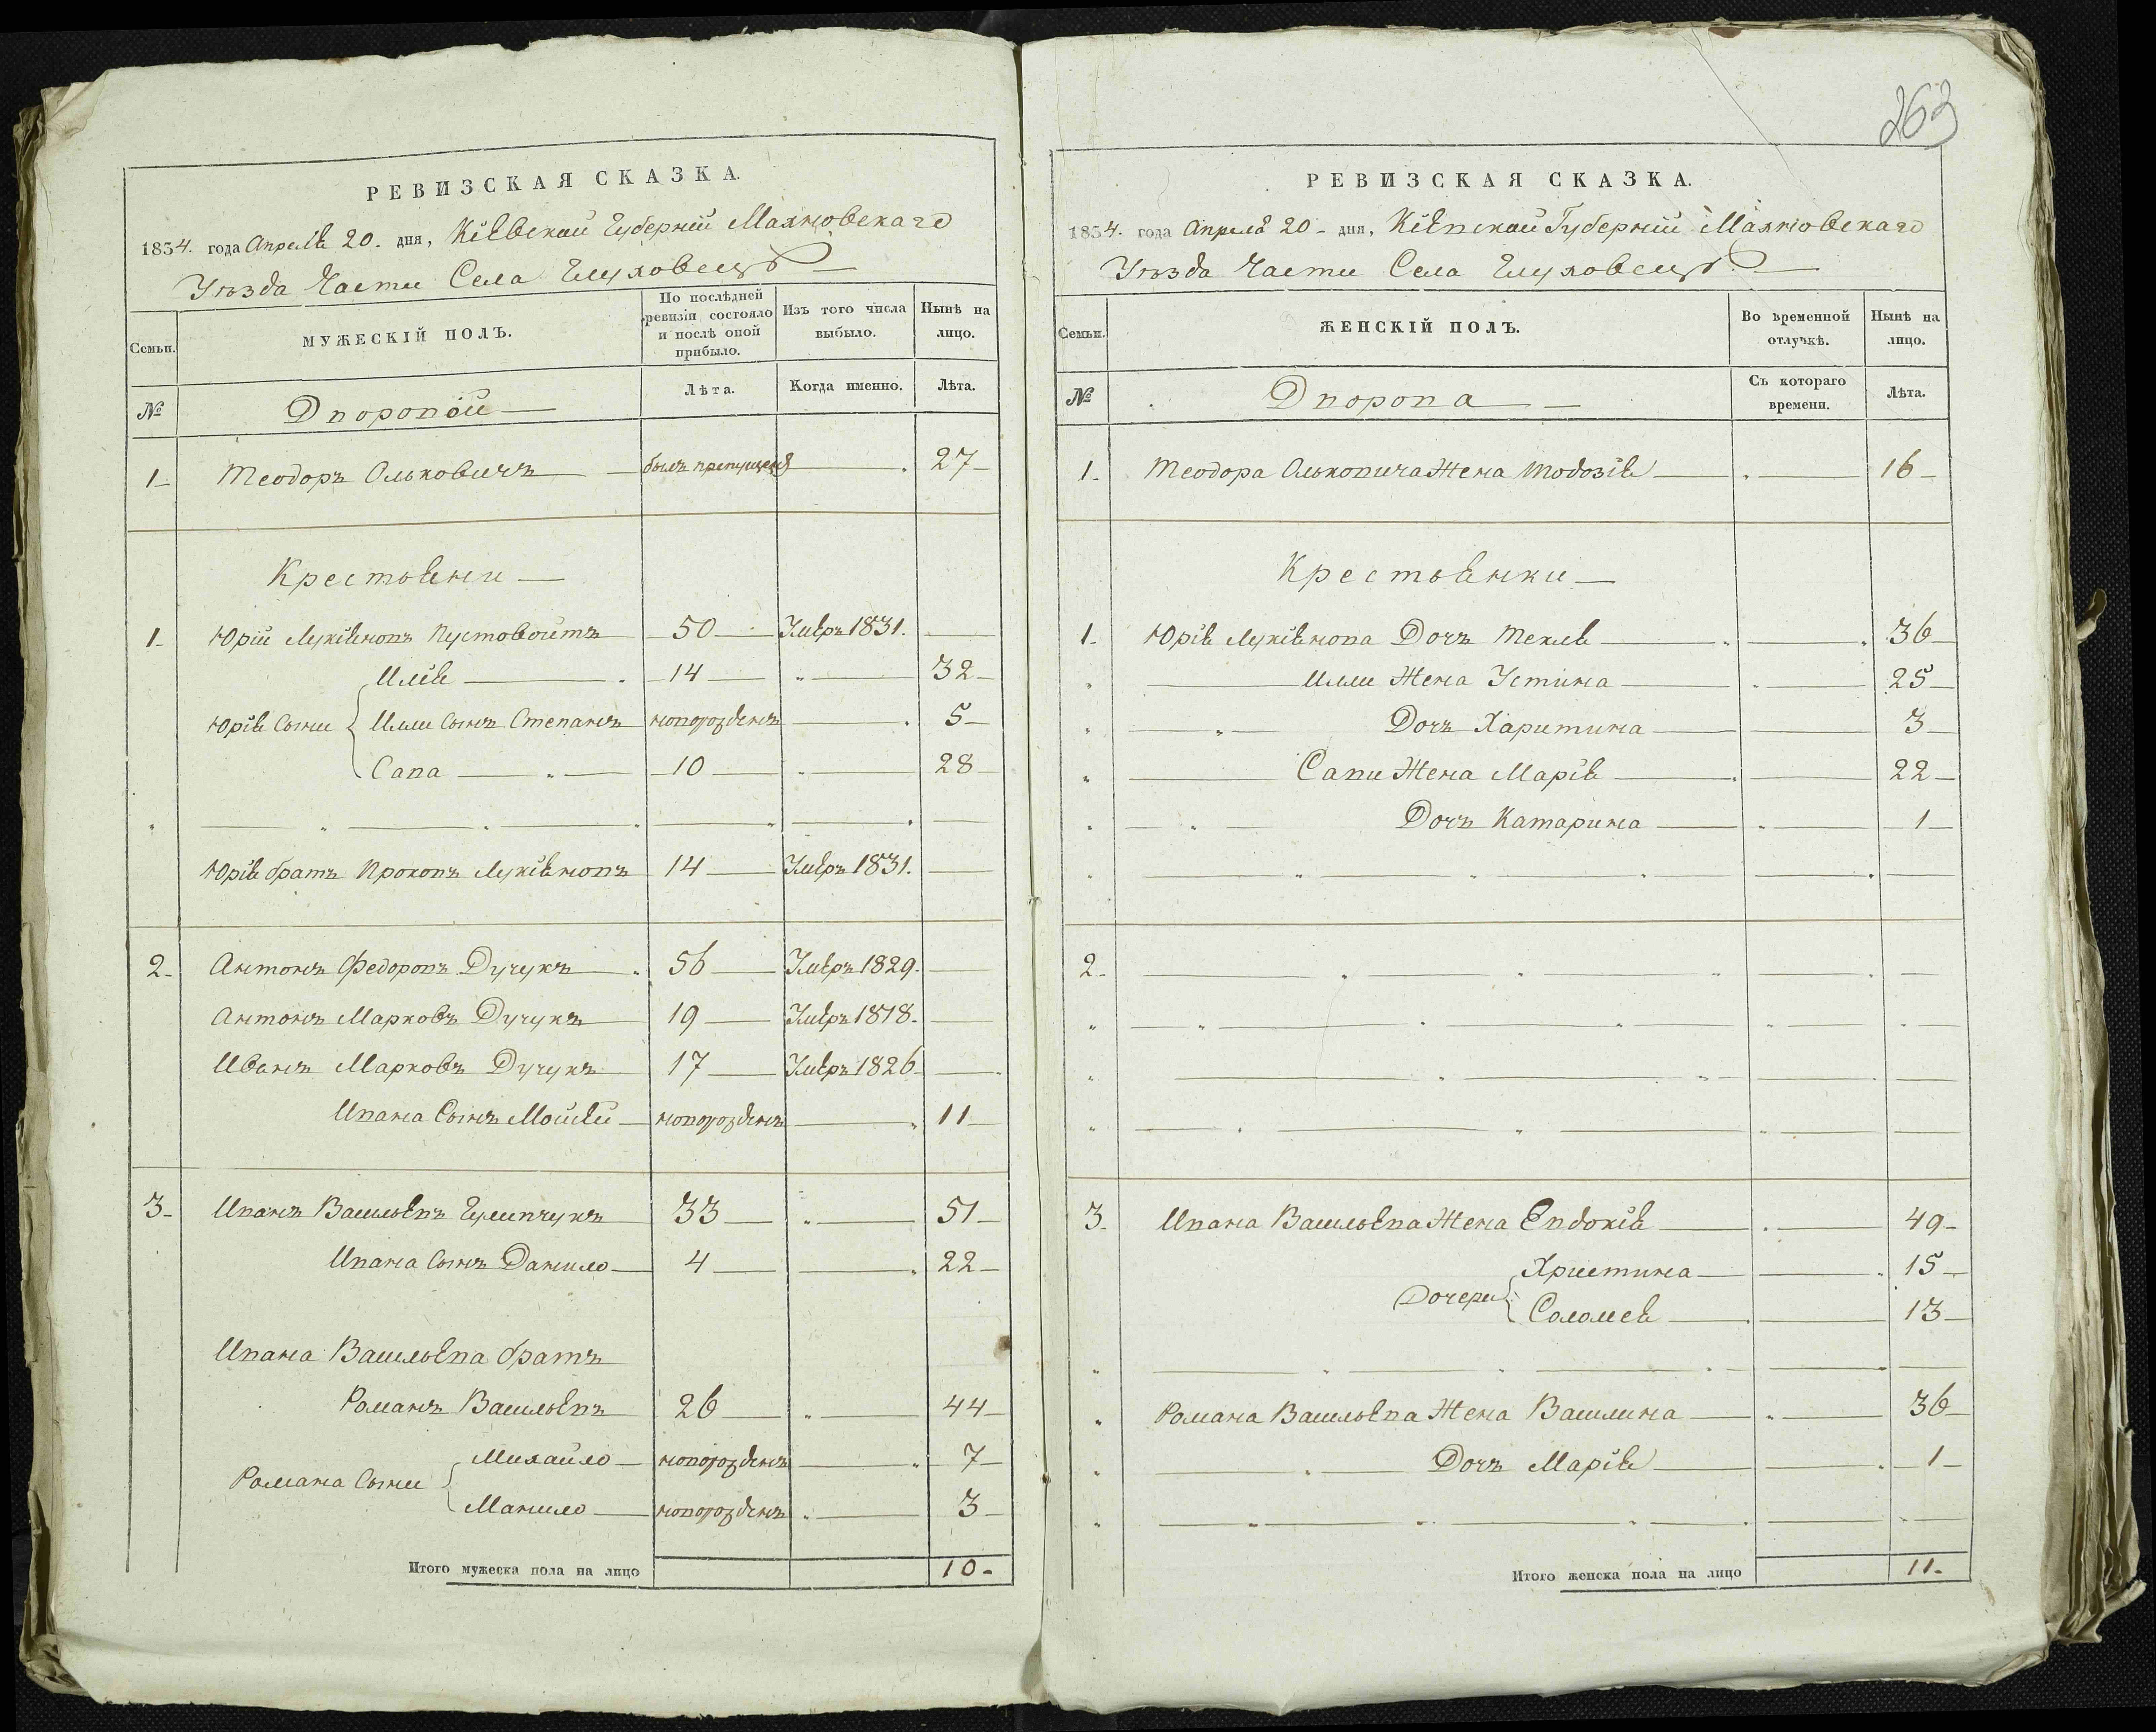 263
РЕВИЗСКАЯ СКАЗКА.
1834. года Апреля 20. дня, Кіевской Губерніи Махновскаго
Уѣзда Части Села Глуховецъ
Семьи. МУЖЕСКІЙ ПОЛЪ. По послѣдней ревизіи состояло и послѣ оной прибыло. Изъ того числа выбыло. Нынѣ на лицо.
№ Дворовой Лѣта. Когда именно. Лѣта.
1 Теодоръ Ольковичъ былъ препущенъ 27
Крестьяни
1 Юрій Лукіяновъ Пустовойтъ 50 Умеръ 1831.
Илія 14 32
Юрія Сыни Илли Сынъ Степанъ новорожденъ 5
Сава 10 28
Юрія братъ Прокопъ Лукіяновъ 14 Умеръ 1831.
2 Антонъ Федоровъ Дучукъ 56 Умеръ 1829.
Антонъ Марковъ Дучукъ 19 Умеръ 1818.
Иванъ Марковъ Дучукъ 17 Умеръ 1826
Ивана Сынъ Мойсей новорожденъ 11
3 Иванъ Васильевъ Гуменчукъ 33 51
Ивана Сынъ Данило 4 22
Ивана Васильева братъ
Романъ Васильевъ 26 44
Романа Сыни Михайло новорожденъ 7
Манило новорожденъ 3
Итого мужеска пола на лицо 10
РЕВИЗСКАЯ СКАЗКА.
1834. года Апреля 20 дня, Кіевской Губерніи Махновскаго
Уѣзда Части Села Глуховецъ
Семьи. ЖЕНСКІЙ ПОЛЪ. Во временной отлучкѣ. Нынѣ на лицо.
№ Дворова Съ котораго времени. Лѣта.
1 Теодора Ольковича Жена Тодозія 16
Крестьянки
1 Юрія Лукіянова Дочъ Текля 36
Илли Жена Устина 25
Дочъ Харитина 3
Сави Жена Марія 22
Дочъ Катарина 1
2
3 Ивана Васильева Жена Евдокія 49
Дочери Христина 15
Соломея 13
Романа Васильева Жена Василина 36
Дочъ Марія 1
Итого женска пола на лицо 11